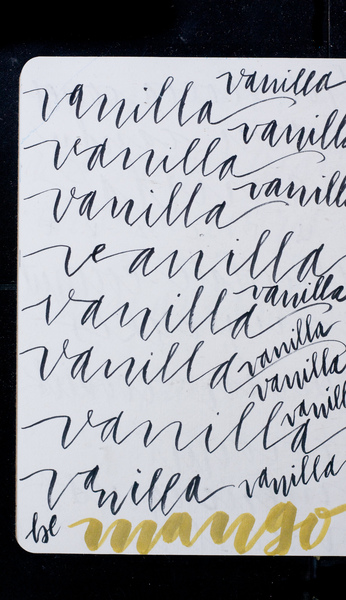 vanilla
vanilla
vanilla
vanilla
vanill
vanilla
veanilla
vanilla
vanilla
vanilla
vanilla
vanilla
vanill
vanilla
vanilla
vanilla
be mango